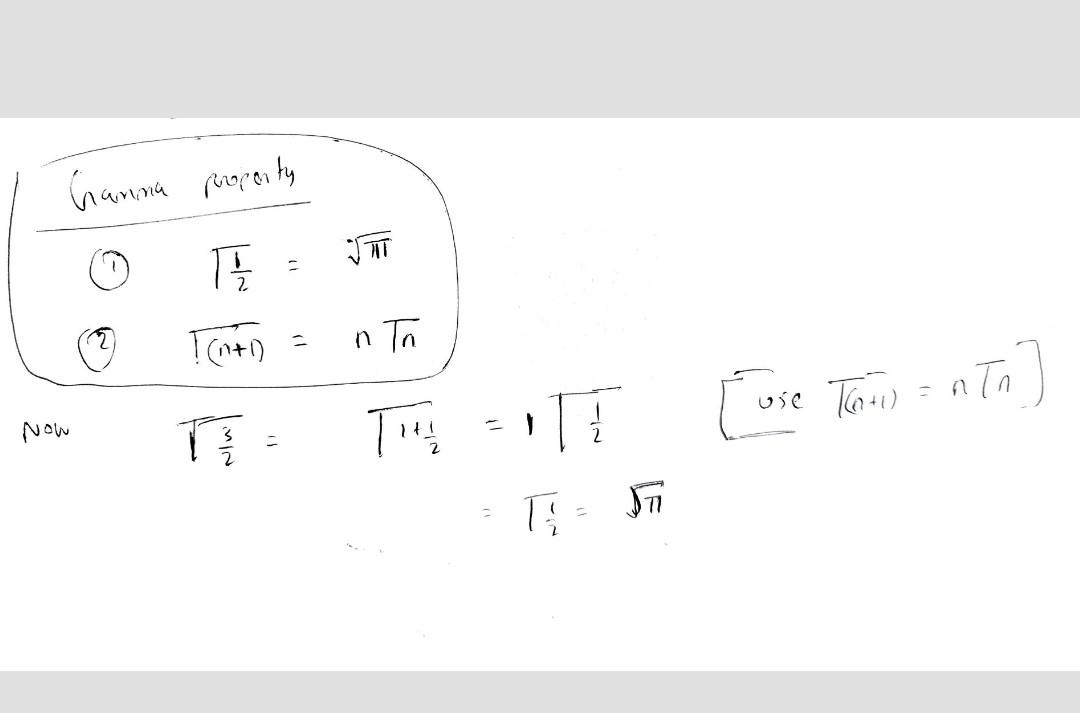 Gamma property
① Γ1/2 = √π
② Γ(n+1) = n Γn
Now Γ3/2 = Γ1+1/2 = 1 Γ1/2 [use Γ(n+1) = n Γn]
= Γ1/2 = √π